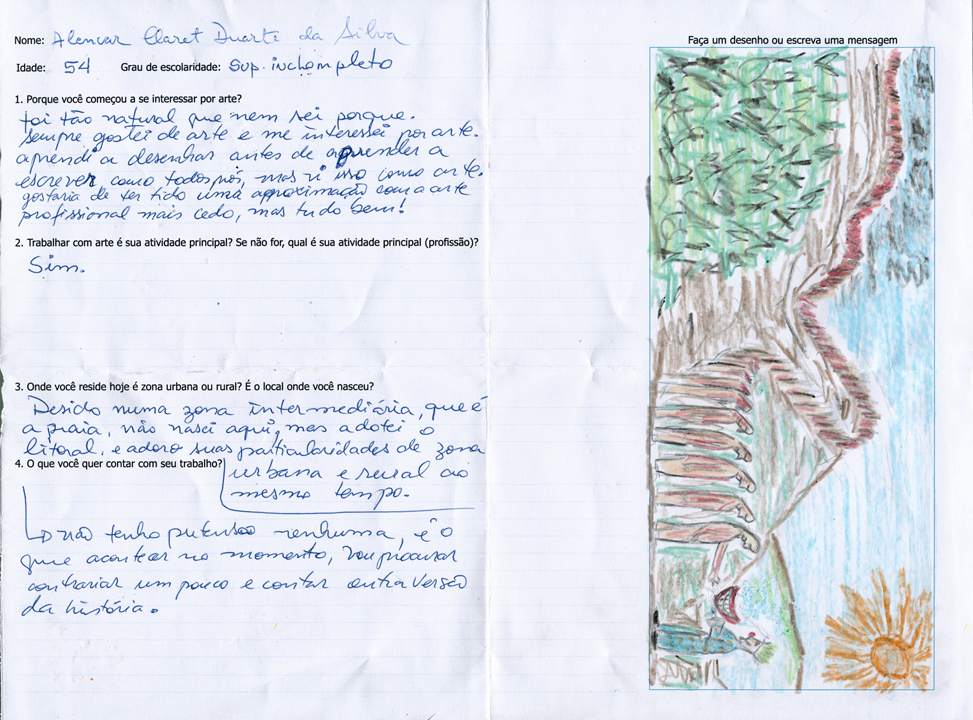 Nome: Alencar Claret Duarte da Silva
Idade: 54 Grau de escolaridade: Sup. inchompleto
1. Porque você começou a se interessar por arte?
foi tão natural que nem sei porque.
sempre gostei de arte e me interessei por arte.
aprendi a desenhar antes de aprender a
escrever como todos nós, mas vi isso como arte.
gostaria de ter tido uma aproximação com a arte
profissional mais cedo, mas tudo bem!
2. Trabalhar com arte é sua atividade principal? Se não for, qual é sua atividade principal (profissão)?
Sim.
3. Onde você reside hoje é zona urbana ou rural? É o local onde você nasceu?
Resido numa zona intermediária, que é
a praia, não nasci aqui, mas adotei o
litoral, e adoro suas particularidades de zona
urbana e rural ao
mesmo tempo.
4. O que você quer contar com seu trabalho?
não tenho nenhuma, é o
que acontecer no momento, vou procurar
contrariar um pouco e contar outra versão
da história.
Faça um desenho ou escreva uma mensagem